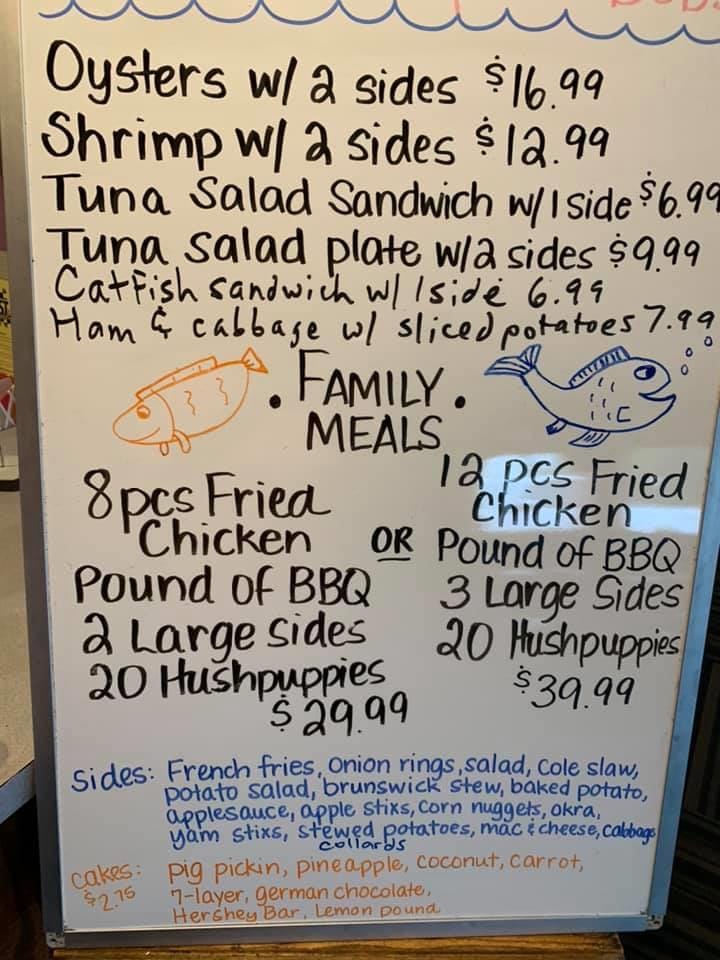 Oysters w/ 2 sides $16.99
Shrimp w/ 2 sides $12.99
Tuna Salad Sandwich w/ 1 side $6.99
Tuna salad plate w/2 sides $9.99
Catfish sandwich w/ 1 side 6.99
Ham & cabbage w/ sliced potatoes 7.99
. FAMILY .
MEALS
8pcs Fried
Chicken
Pound of BBQ
2 Large sides
20 Hushpuppies
$29.99
OR
12 pcs Fried
Chicken
Pound of BBQ
3 Large Sides
20 Hushpuppies
$39.99
Sides: French fries, Onion rings, salad, Cole slaw,
potato salad, brunswick stew, baked potato,
applesauce, apple stixs, corn nuggets, okra,
yam stixs, stewed potatoes, mac & cheese, cabbage
collards
cakes: pig pickin, pineapple, coconut, carrot,
$2.75 7-layer, german chocolate,
Hershey Bar, Lemon pound